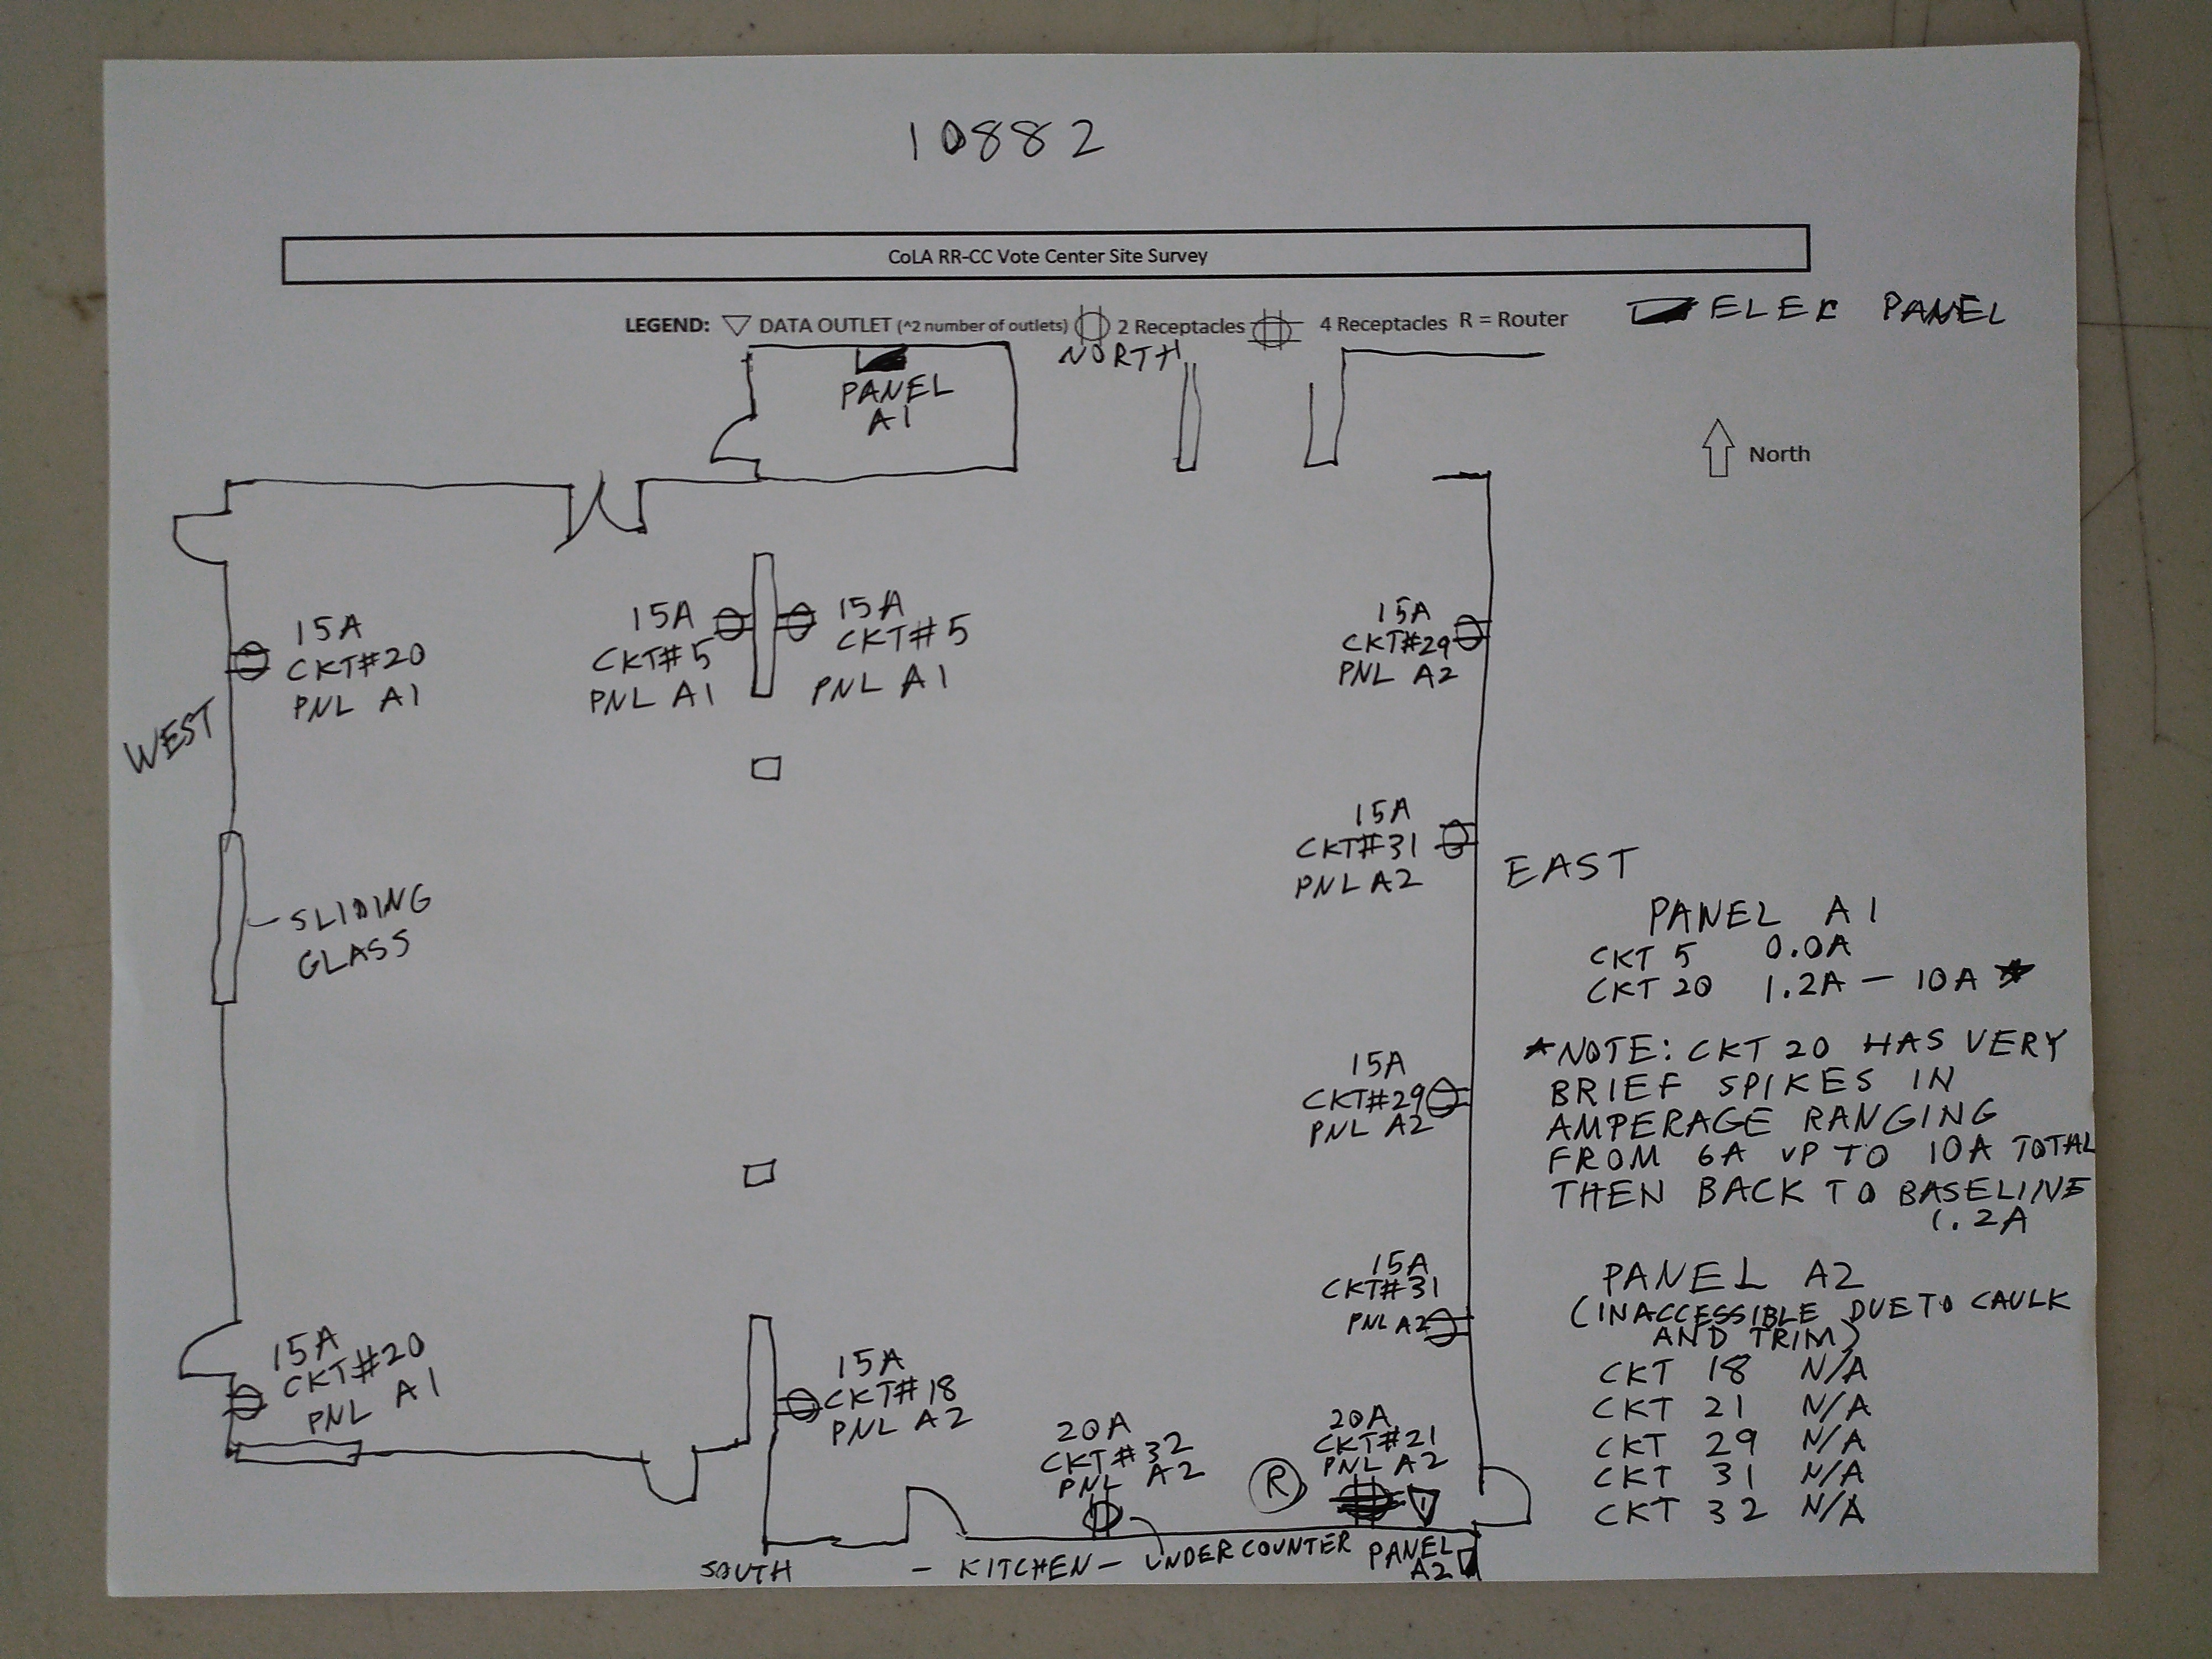 10882
CoLA RR-CC Vote Center Site Survey
LEGEND: DATA OUTLET (^2 number of outlets) 2 Receptacles 4 Receptacles R = Router
ELEC PANEL
NORTH
PANEL
A1
North
15A
CKT#20
PNL A1
15A
CKT#5
PNL A1
15A
CKT#5
PNL A1
15A
CKT#29
PNL A2
WEST
15A
CKT#31
PNL A2
EAST
SLIDING
GLASS
PANEL A1
CKT 5 0.0A
CKT 20 1.2A - 10A ★
★NOTE: CKT 20 HAS VERY
BRIEF SPIKES IN
AMPERAGE RANGING
FROM 6A UP TO 10A TOTAL
THEN BACK TO BASELINE
1.2A
15A
CKT#29
PNL A2
15A
CKT#31
PNL A2
PANEL A2
(INACCESSIBLE DUE TO CAULK
AND TRIM)
CKT 18 N/A
CKT 21 N/A
CKT 29 N/A
CKT 31 N/A
CKT 32 N/A
15A
CKT#20
PNL A1
15A
CKT#18
PNL A2
20A
CKT#32
PNL A2
R
20A
CKT#21
PNL A2
1
SOUTH
- KITCHEN -
UNDER COUNTER
PANEL
A2